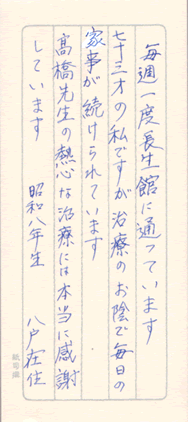 毎週一度長生館に通っています
七十三才の私ですが治療のお陰で毎日の
家事が続けられています
髙橋先生の熱心な治療には本当に感謝
しています　昭和八年生　八戸在住